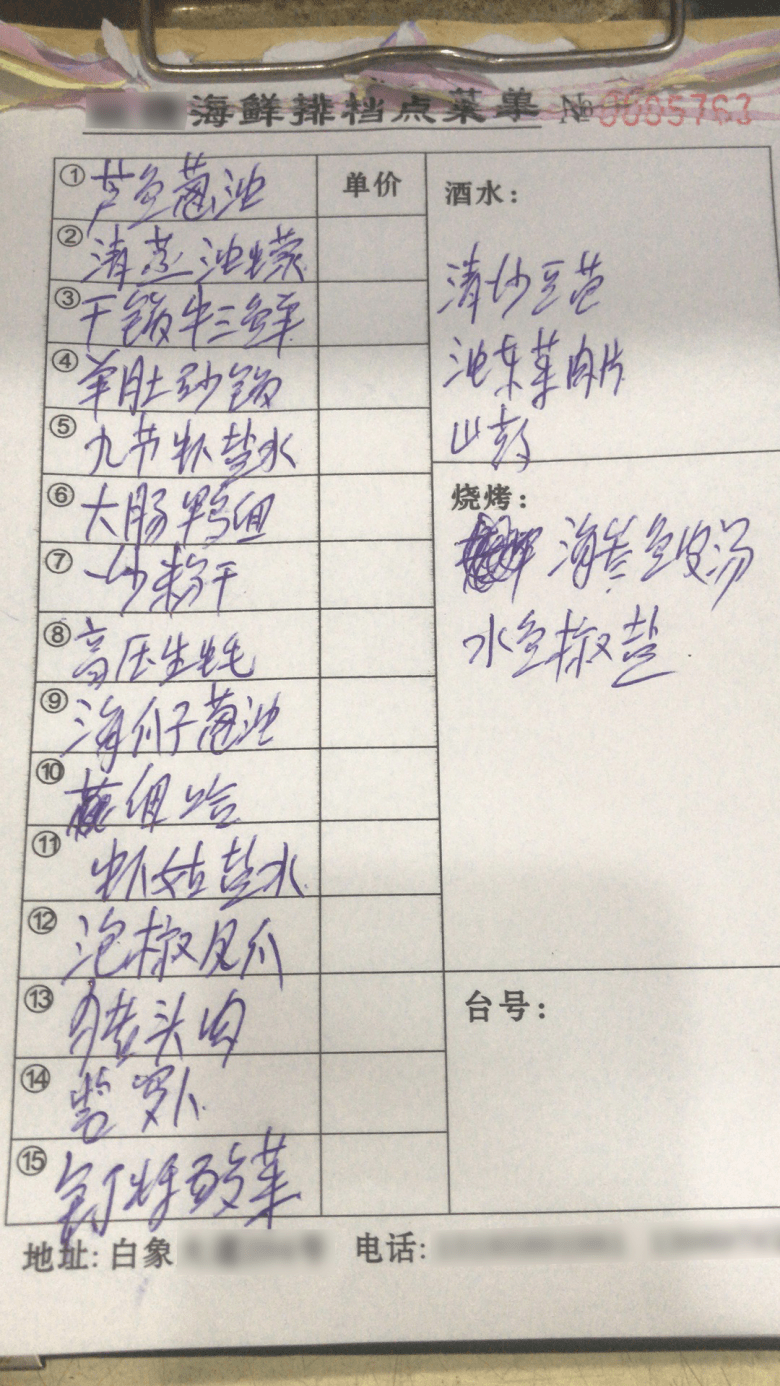 海鲜排档点菜单 № 0005763
① 芦鱼葱油
单价
② 清蒸油蠓
③ 干锅牛三鲜
④ 羊肚砂锅
⑤ 九节虾盐水
⑥ 大肠鸭血
⑦ 炒粉干
⑧ 高压生蚝
⑨ 海瓜子葱油
⑩ 花蛤
⑪ 虾姑盐水
⑫ 泡椒凤爪
⑬ 猪头肉
⑭ 萝卜
⑮ 酸菜
酒水：
清炒豆苗
油冬菜肉片
山药
烧烤：
海参鱼皮汤
水鱼椒盐
台号：
地址: 白象
电话: